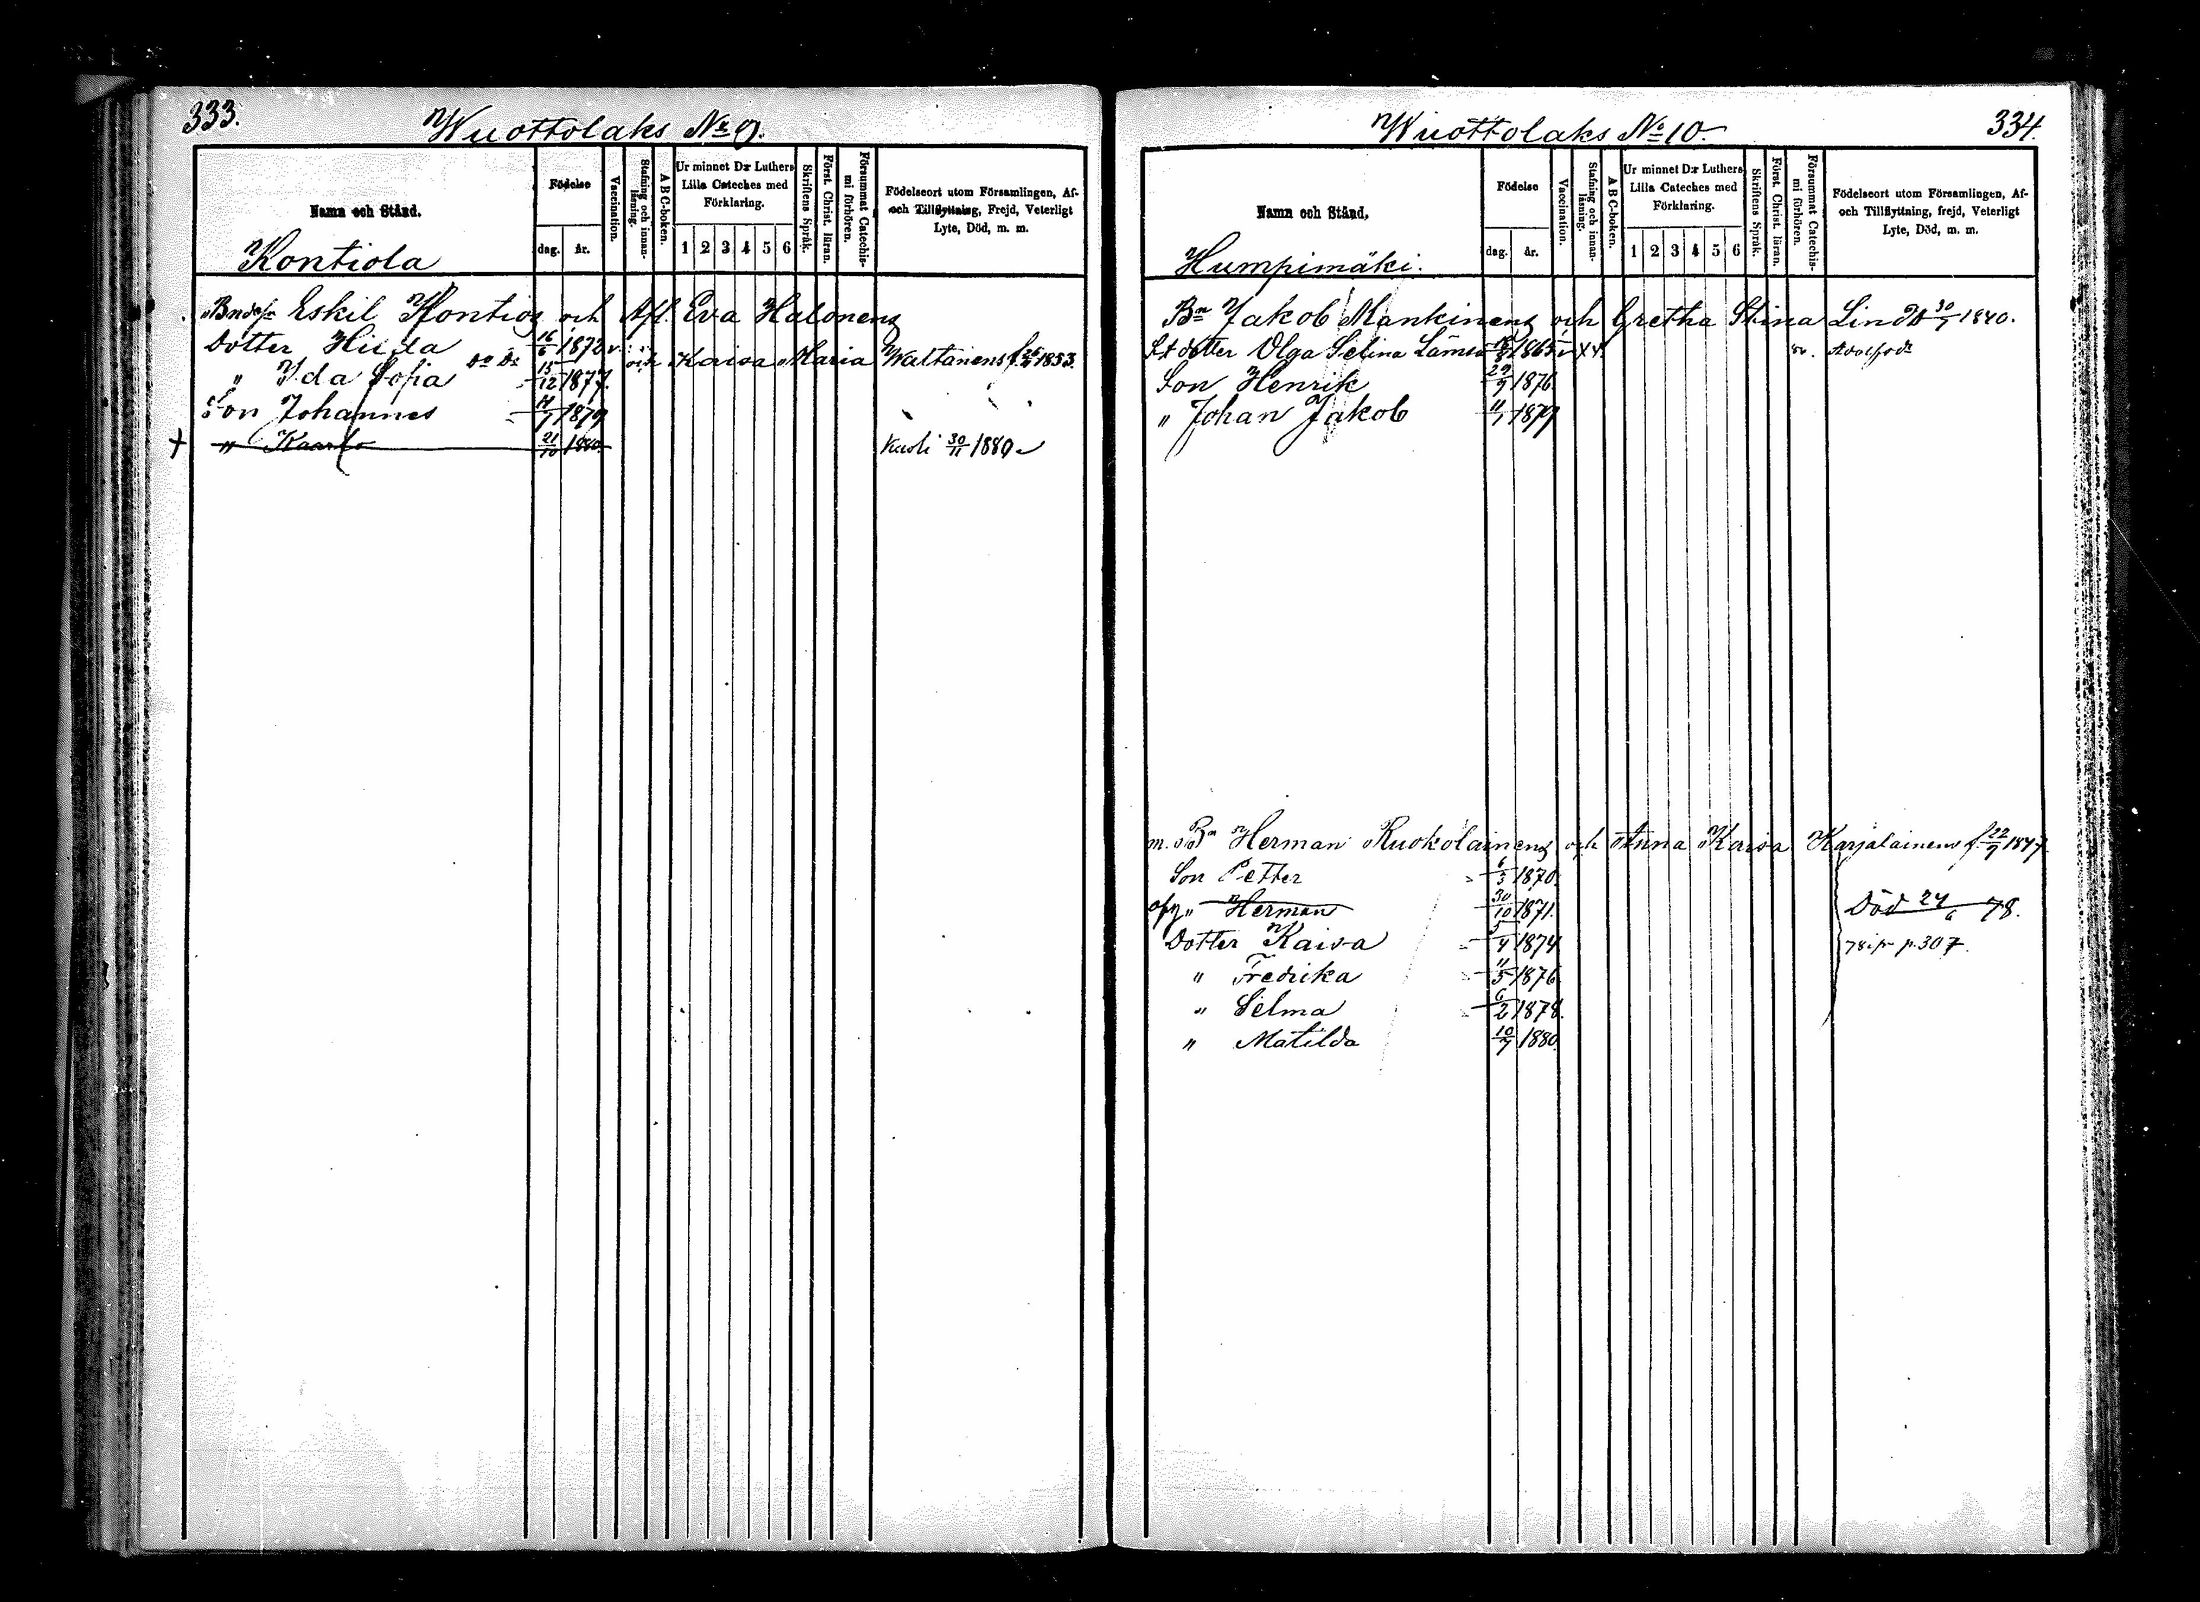 333.
Wuottolaks No 9.
Namn och Stånd.
Födelse
dag. år.
Vaccination.
Stafning och innan-läsning.
A B C-boken.
Ur minnet D:r Luthers Lilla Cateches med Förklaring.
1 2 3 4 5 6
Skriftens Språk.
Först. Christ. läran.
Försummat Catechis-mi förhören.
Födelseort utom Församlingen, Af- och Tillflyttning, Frejd, Veterligt Lyte, Död, m. m.
Kontiola
Eskil Kontios och Afl. Eva Halonens
Dotter Hilda 16/6 1872 v.
Do Do och Kaisa Maria Waltanens f. 1853.
" Ida Sofia 15/12 1877
Son Johannes 1879
+ " Kaarlo 21/10 1880 Kuoli 30/11 1880
334.
Wuottolaks No 10.
Namn och Stånd.
Födelse
dag. år.
Vaccination.
Stafning och innan-läsning.
A B C-boken.
Ur minnet D:r Luthers Lilla Cateches med Förklaring.
1 2 3 4 5 6
Skriftens Språk.
Först. Christ. läran.
Försummat Catechis-mi förhören.
Födelseort utom Församlingen, Af- och Tillflyttning, frejd, Veterligt Lyte, Död, m. m.
Humpimäki.
Bn Jakob Mankinens och Gretha Stina Lind 30/7 1840.
dotter Olga Selina 1865
Son Henrik 29/9 1876
" Johan Jakob 1879
m. Bn Herman Ruokolainens och Anna Kaisa Karjalainens f. 22/7 1847
Son Petter 6/3 1870.
" Herman 30/10 1871. Död 24/6 78.
Dotter Kaisa 5/4 1874 p. 307.
" Fredrika 11/5 1876
" Selma 6/2 1878.
" Matilda 10/7 1880.